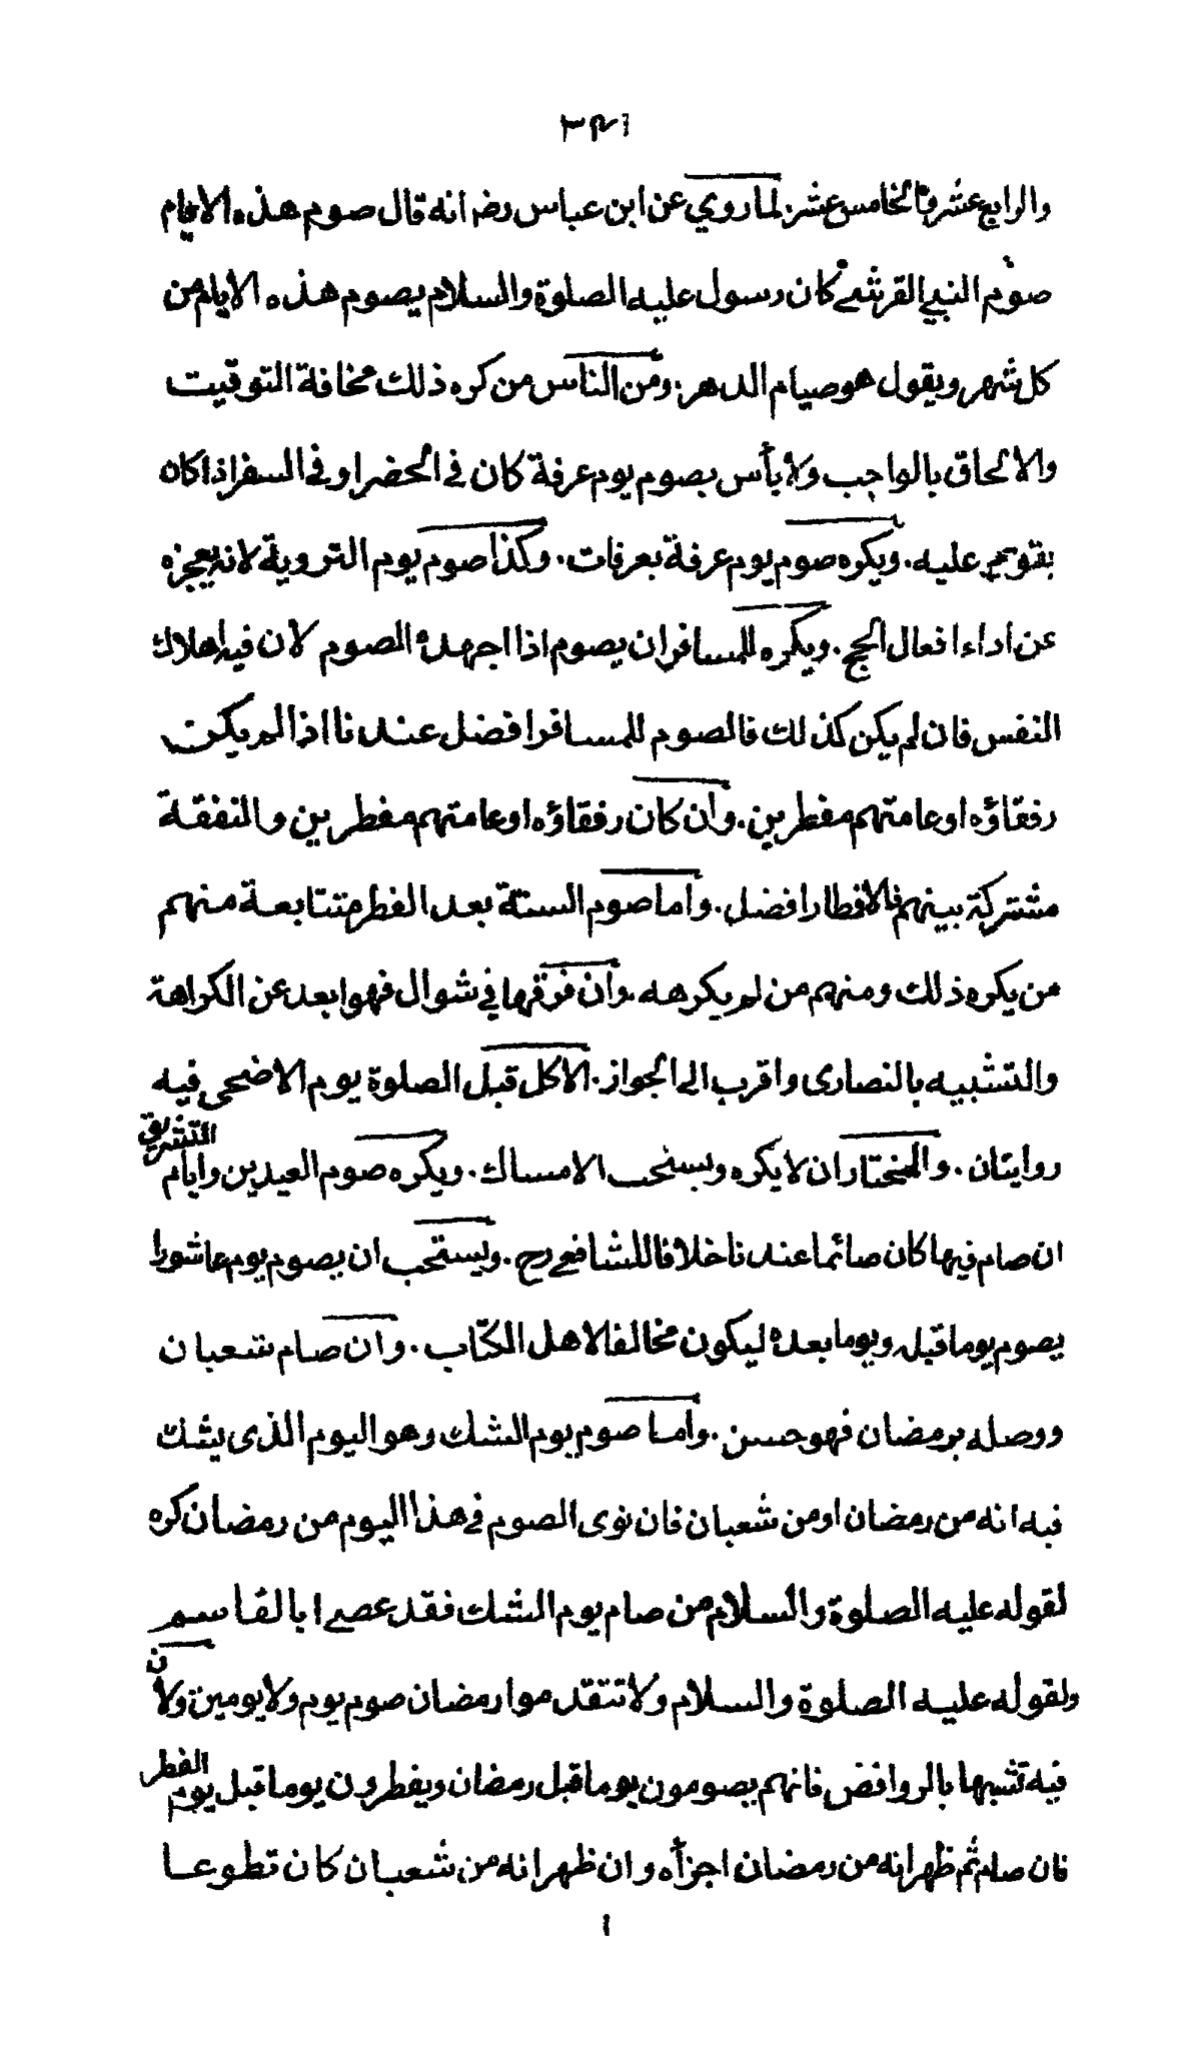 ٣٤١
والرابع عشر والخامس عشر. لما روي عن ابن عباس رضه انه قال صوم هذه الايام
صوم النبي القرشي كان رسول عليه الصلوة والسلام يصوم هذه الايام من
كل شهر ويقول هو صيام الدهر. ومن الناس من كره ذلك مخافة التوقيت
والالحاق بالواجب ولا بأس بصوم يوم عرفة كان في الحضر او في السفر اذا كان
يقوى عليه. ويكره صوم يوم عرفة بعرفات. وكذا صوم يوم التروية لانه يعجزه
عن اداء افعال الحج. ويكره للمسافر ان يصوم اذا اجهده الصوم لان فيه اهلاك
النفس فان لم يكن كذلك فالصوم للمسافر افضل عندنا اذا لم يكن
رفقاؤه او عامتهم مفطرين. وان كان رفقاؤه او عامتهم مفطرين والنفقة
مشتركة بينهم فالافطار افضل. واما صوم الستة بعد الفطر متتابعة منهم
من يكره ذلك ومنهم من لم يكرهه. وان فرقها في شوال فهو ابعد عن الكراهة
والتشبيه بالنصارى واقرب الى الجواز. الاكل قبل الصلوة يوم الاضحى فيه
روايتان. والمختار ان لا يكره ويستحب الامساك. ويكره صوم العيدين وايام التشريق
ان صام فيها كان صائما عندنا خلافا للشافعي رح. ويستحب ان يصوم يوم عاشورا
يصوم يوما قبله ويوما بعده ليكون مخالفا لاهل الكتاب. وان صام شعبان
ووصله برمضان فهو حسن. واما صوم يوم الشك وهو اليوم الذى يشك
فيه انه من رمضان او من شعبان فان نوى الصوم في هذا اليوم من رمضان كره
لقوله عليه الصلوة والسلام من صام يوم الشك فقد عصى ابا القاسم
ولقوله عليه الصلوة والسلام ولا تتقدموا رمضان صوم يوم ولا يومين ولان
فيه تشبها بالروافض فانهم يصومون يوما قبل رمضان ويفطرون يوما قبل يوم الفطر
فان صام ثم ظهر انه من رمضان اجزأه وان ظهر انه من شعبان كان تطوعا